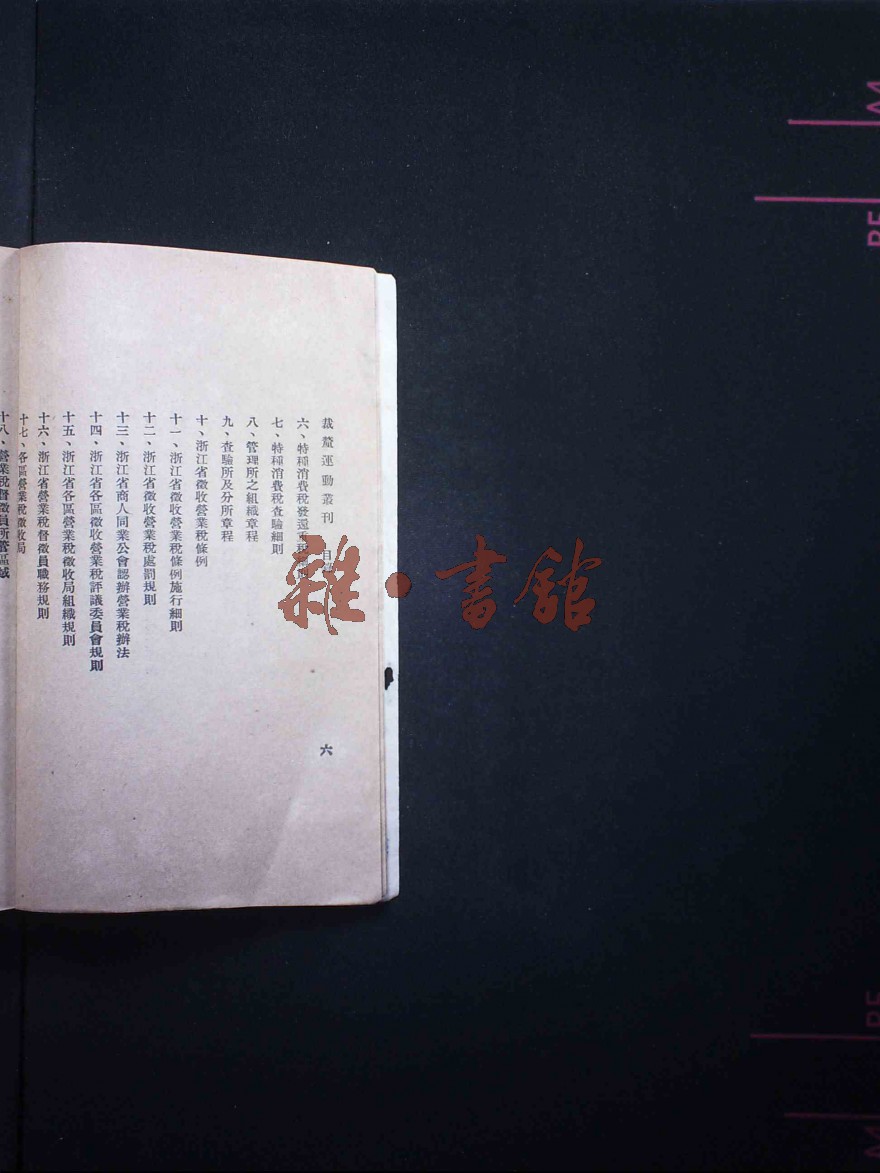 裁釐運動叢刊 目
六
六、特種消費稅發還重稅
七、特種消費稅查驗細則
八、管理所之組織章程
九、查驗所及分所章程
十、浙江省徵收營業稅條例
十一、浙江省徵收營業稅條例施行細則
十二、浙江省徵收營業稅處罰規則
十三、浙江省商人同業公會認辦營業稅辦法
十四、浙江省各區徵收營業稅評議委員會規則
十五、浙江省各區營業稅徵收局組織規則
十六、浙江省營業稅督徵員職務規則
十七、各區營業稅徵收局
十八、營業稅督徵員所管區域
雜·書館
A4
B5
B5
A4